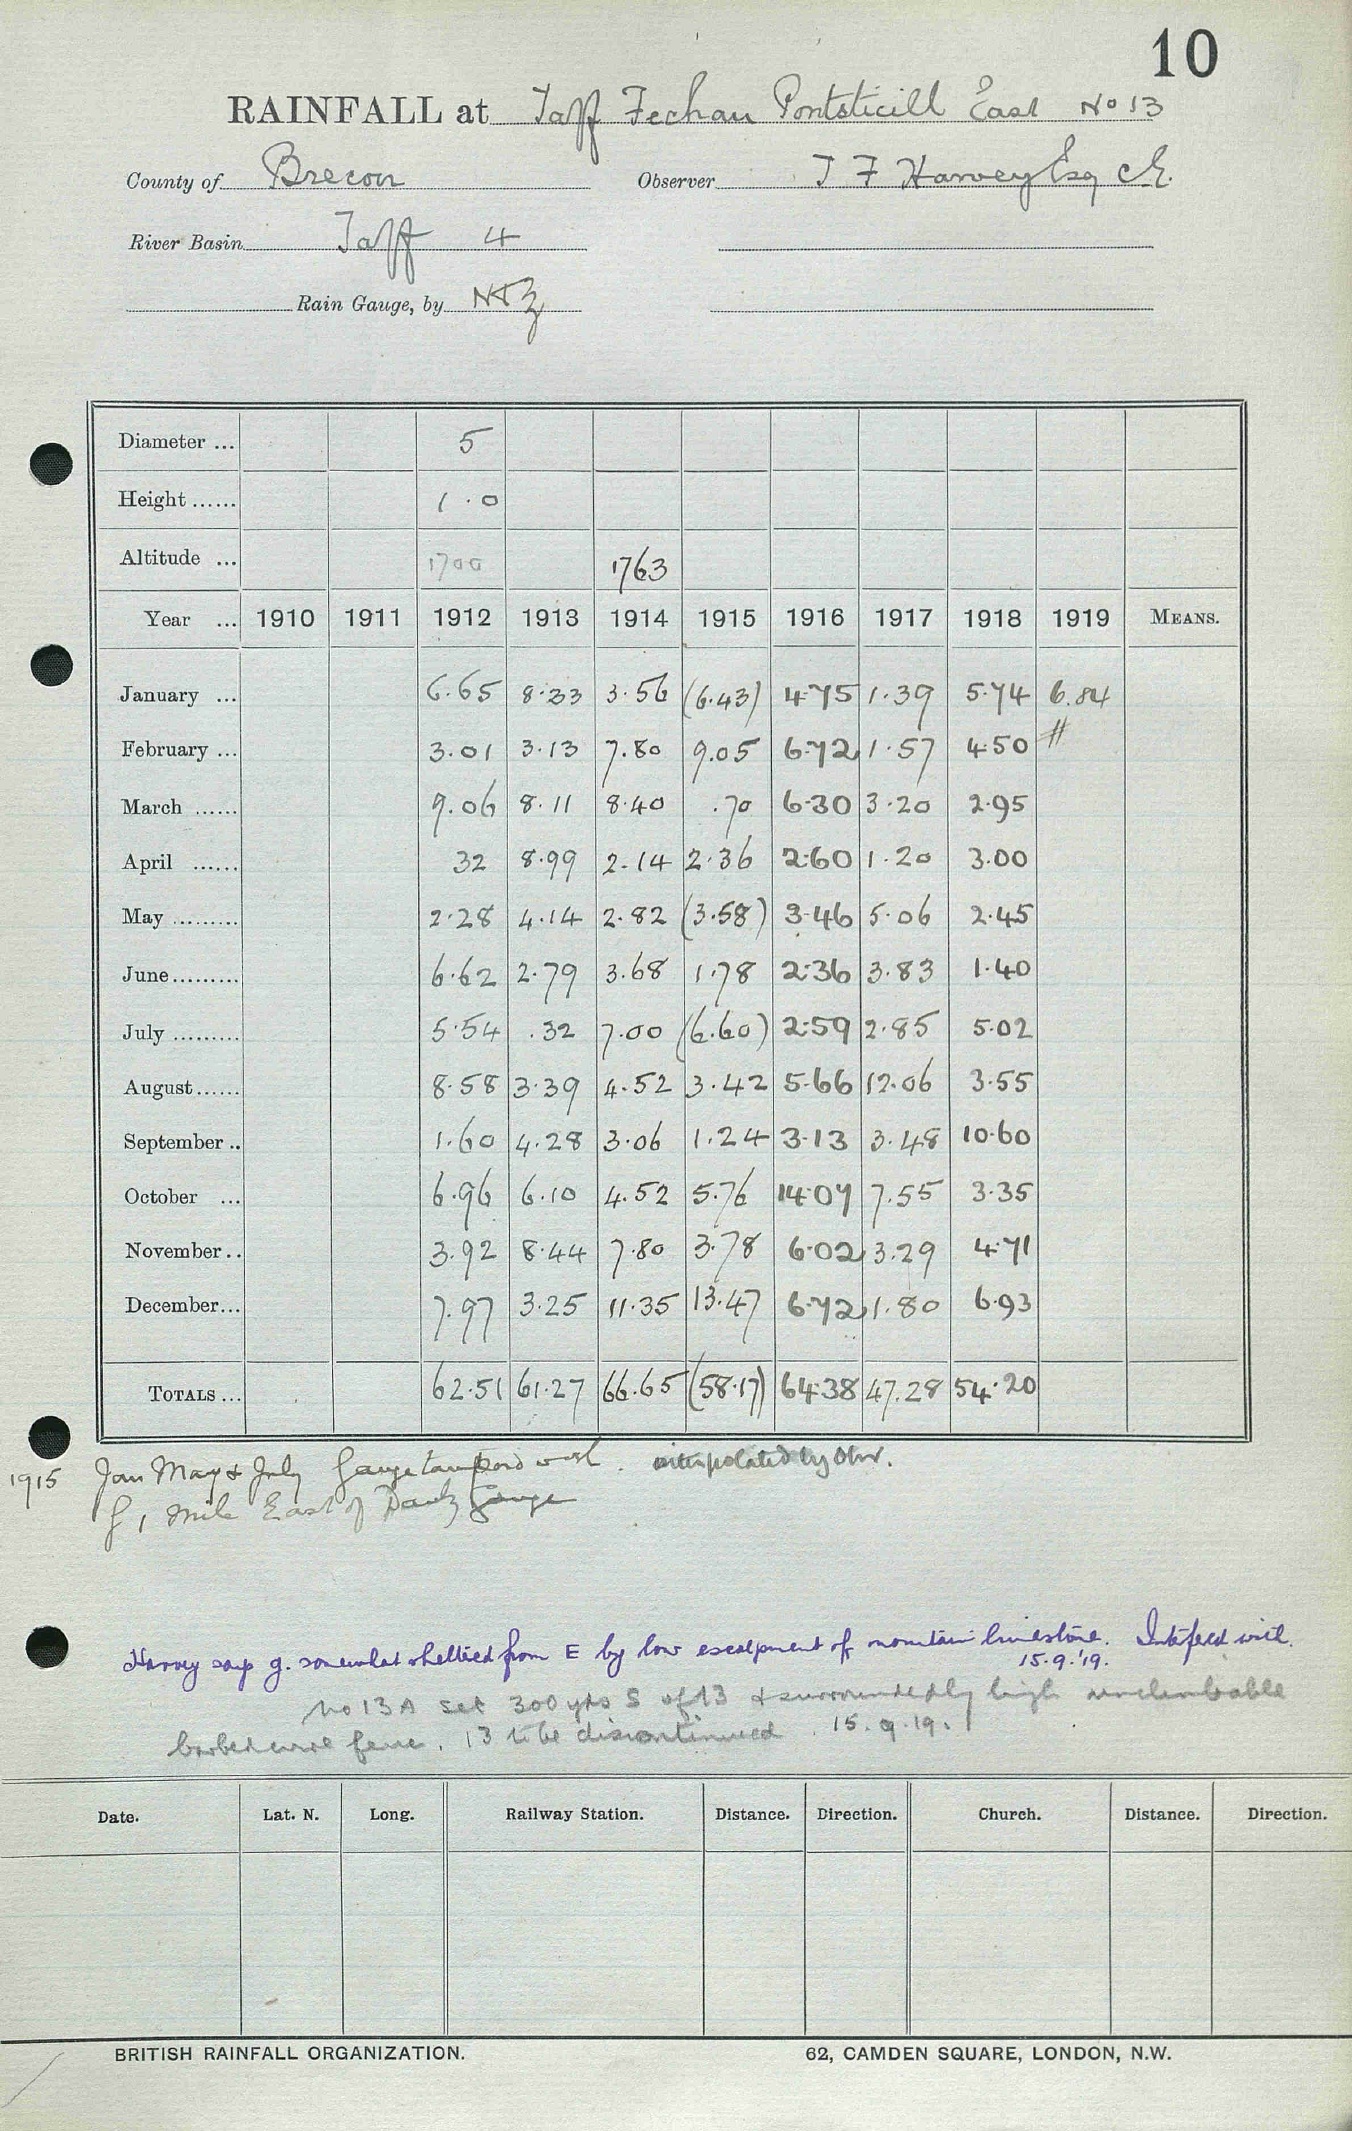 10
RAINFALL at Taff Fechan Pontsticill East No 13
County of Brecon Observer T F Harvey Esq CE.
River Basin Taff 4
Rain Gauge, by
Diameter ... 5
Height ...... 1.0
Altitude ... 1700 1763
Year ... 1910 1911 1912 1913 1914 1915 1916 1917 1918 1919 MEANS.
January ... 6.65 8.33 3.56 (6.43) 4.75 1.39 5.74 6.84
February ... 3.01 3.13 7.80 9.05 6.72 1.57 4.50 //
March ...... 9.06 8.11 8.40 .70 6.30 3.20 2.95
April ...... 32 8.99 2.14 2.36 2.60 1.20 3.00
May ......... 2.28 4.14 2.82 (3.58) 3.46 5.06 2.45
June......... 6.62 2.79 3.68 1.78 2.36 3.83 1.40
July ......... 5.54 .32 7.00 (6.60) 2.59 2.85 5.02
August...... 8.58 3.39 4.52 3.42 5.66 12.06 3.55
September .. 1.60 4.28 3.06 1.24 3.13 3.48 10.60
October ... 6.96 6.10 4.52 5.76 14.07 7.55 3.35
November.. 3.92 8.44 7.80 3.78 6.02 3.29 4.71
December... 7.97 3.25 11.35 13.47 6.72 1.80 6.93
TOTALS ... 62.51 61.27 66.65 (58.17) 64.38 47.28 54.20
1915 Jan May & July Gauge tampered with. interpolated by Obsr.
1 mile East of Gauge
Harvey says g. somewhat sheltered from E by low escarpment of mountain limestone. Interfered with.
15.9.'19.
No 13A set 300 yds S of 13 & surrounded by high unclimbable
barbed wire fence. 13 to be discontinued. 15.9.19.
Date. Lat. N. Long. Railway Station. Distance. Direction. Church. Distance. Direction.
BRITISH RAINFALL ORGANIZATION. 62, CAMDEN SQUARE, LONDON, N.W.